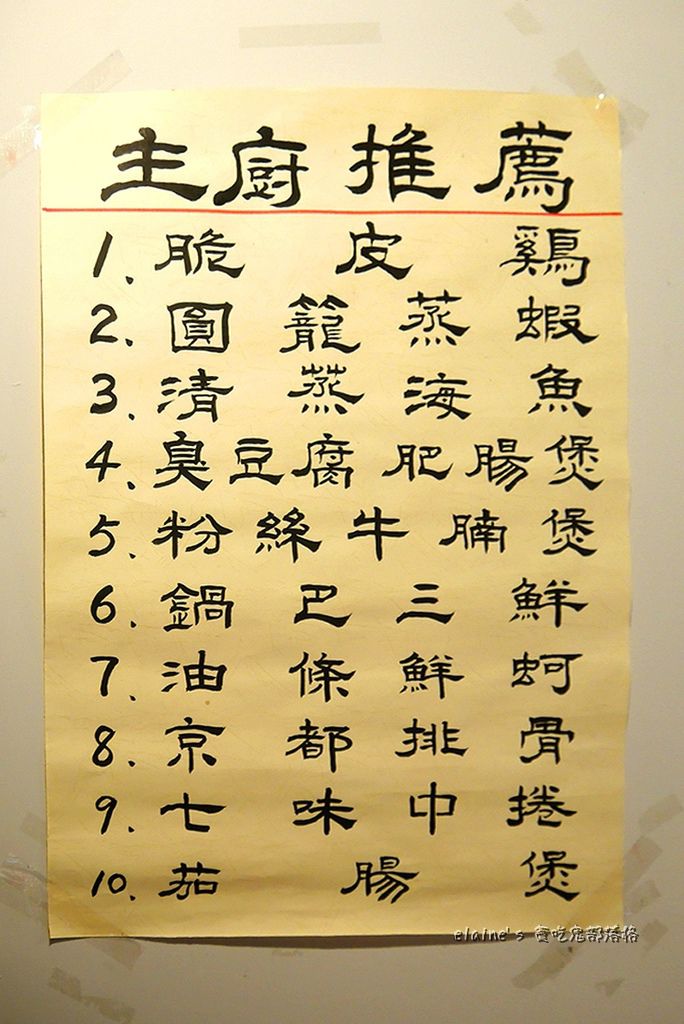 主廚推薦
1. 脆皮鷄
2. 圓籠蒸蝦
3. 清蒸海魚
4. 臭豆腐肥腸煲
5. 粉絲牛腩煲
6. 鍋巴三鮮
7. 油條鮮蚵
8. 京都排骨
9. 七味中捲
10. 茄腸煲
elaine's 貪吃鬼部落格